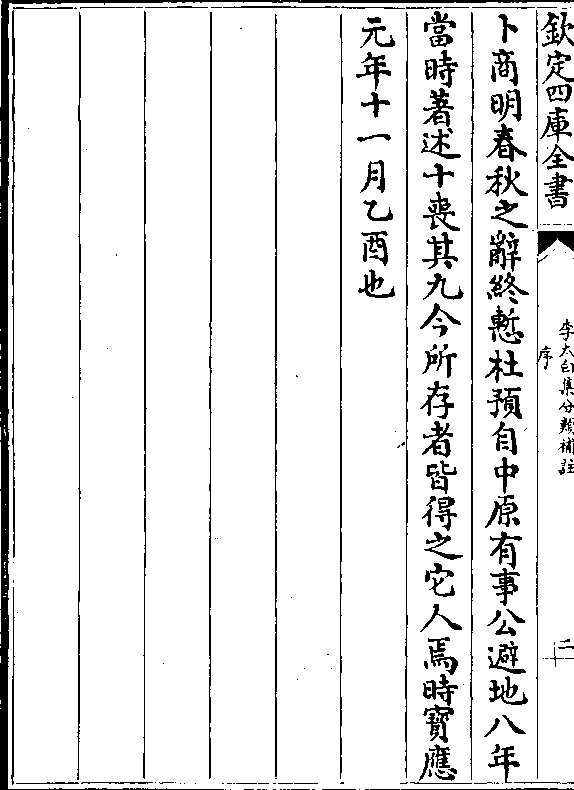 欽定四庫全書
李太白集分類補註
序
二
卜商明春秋之辭終慙杜預自中原有事公避地八年
當時著述十喪其九今所存者皆得之它人焉時寶應
元年十一月乙酉也